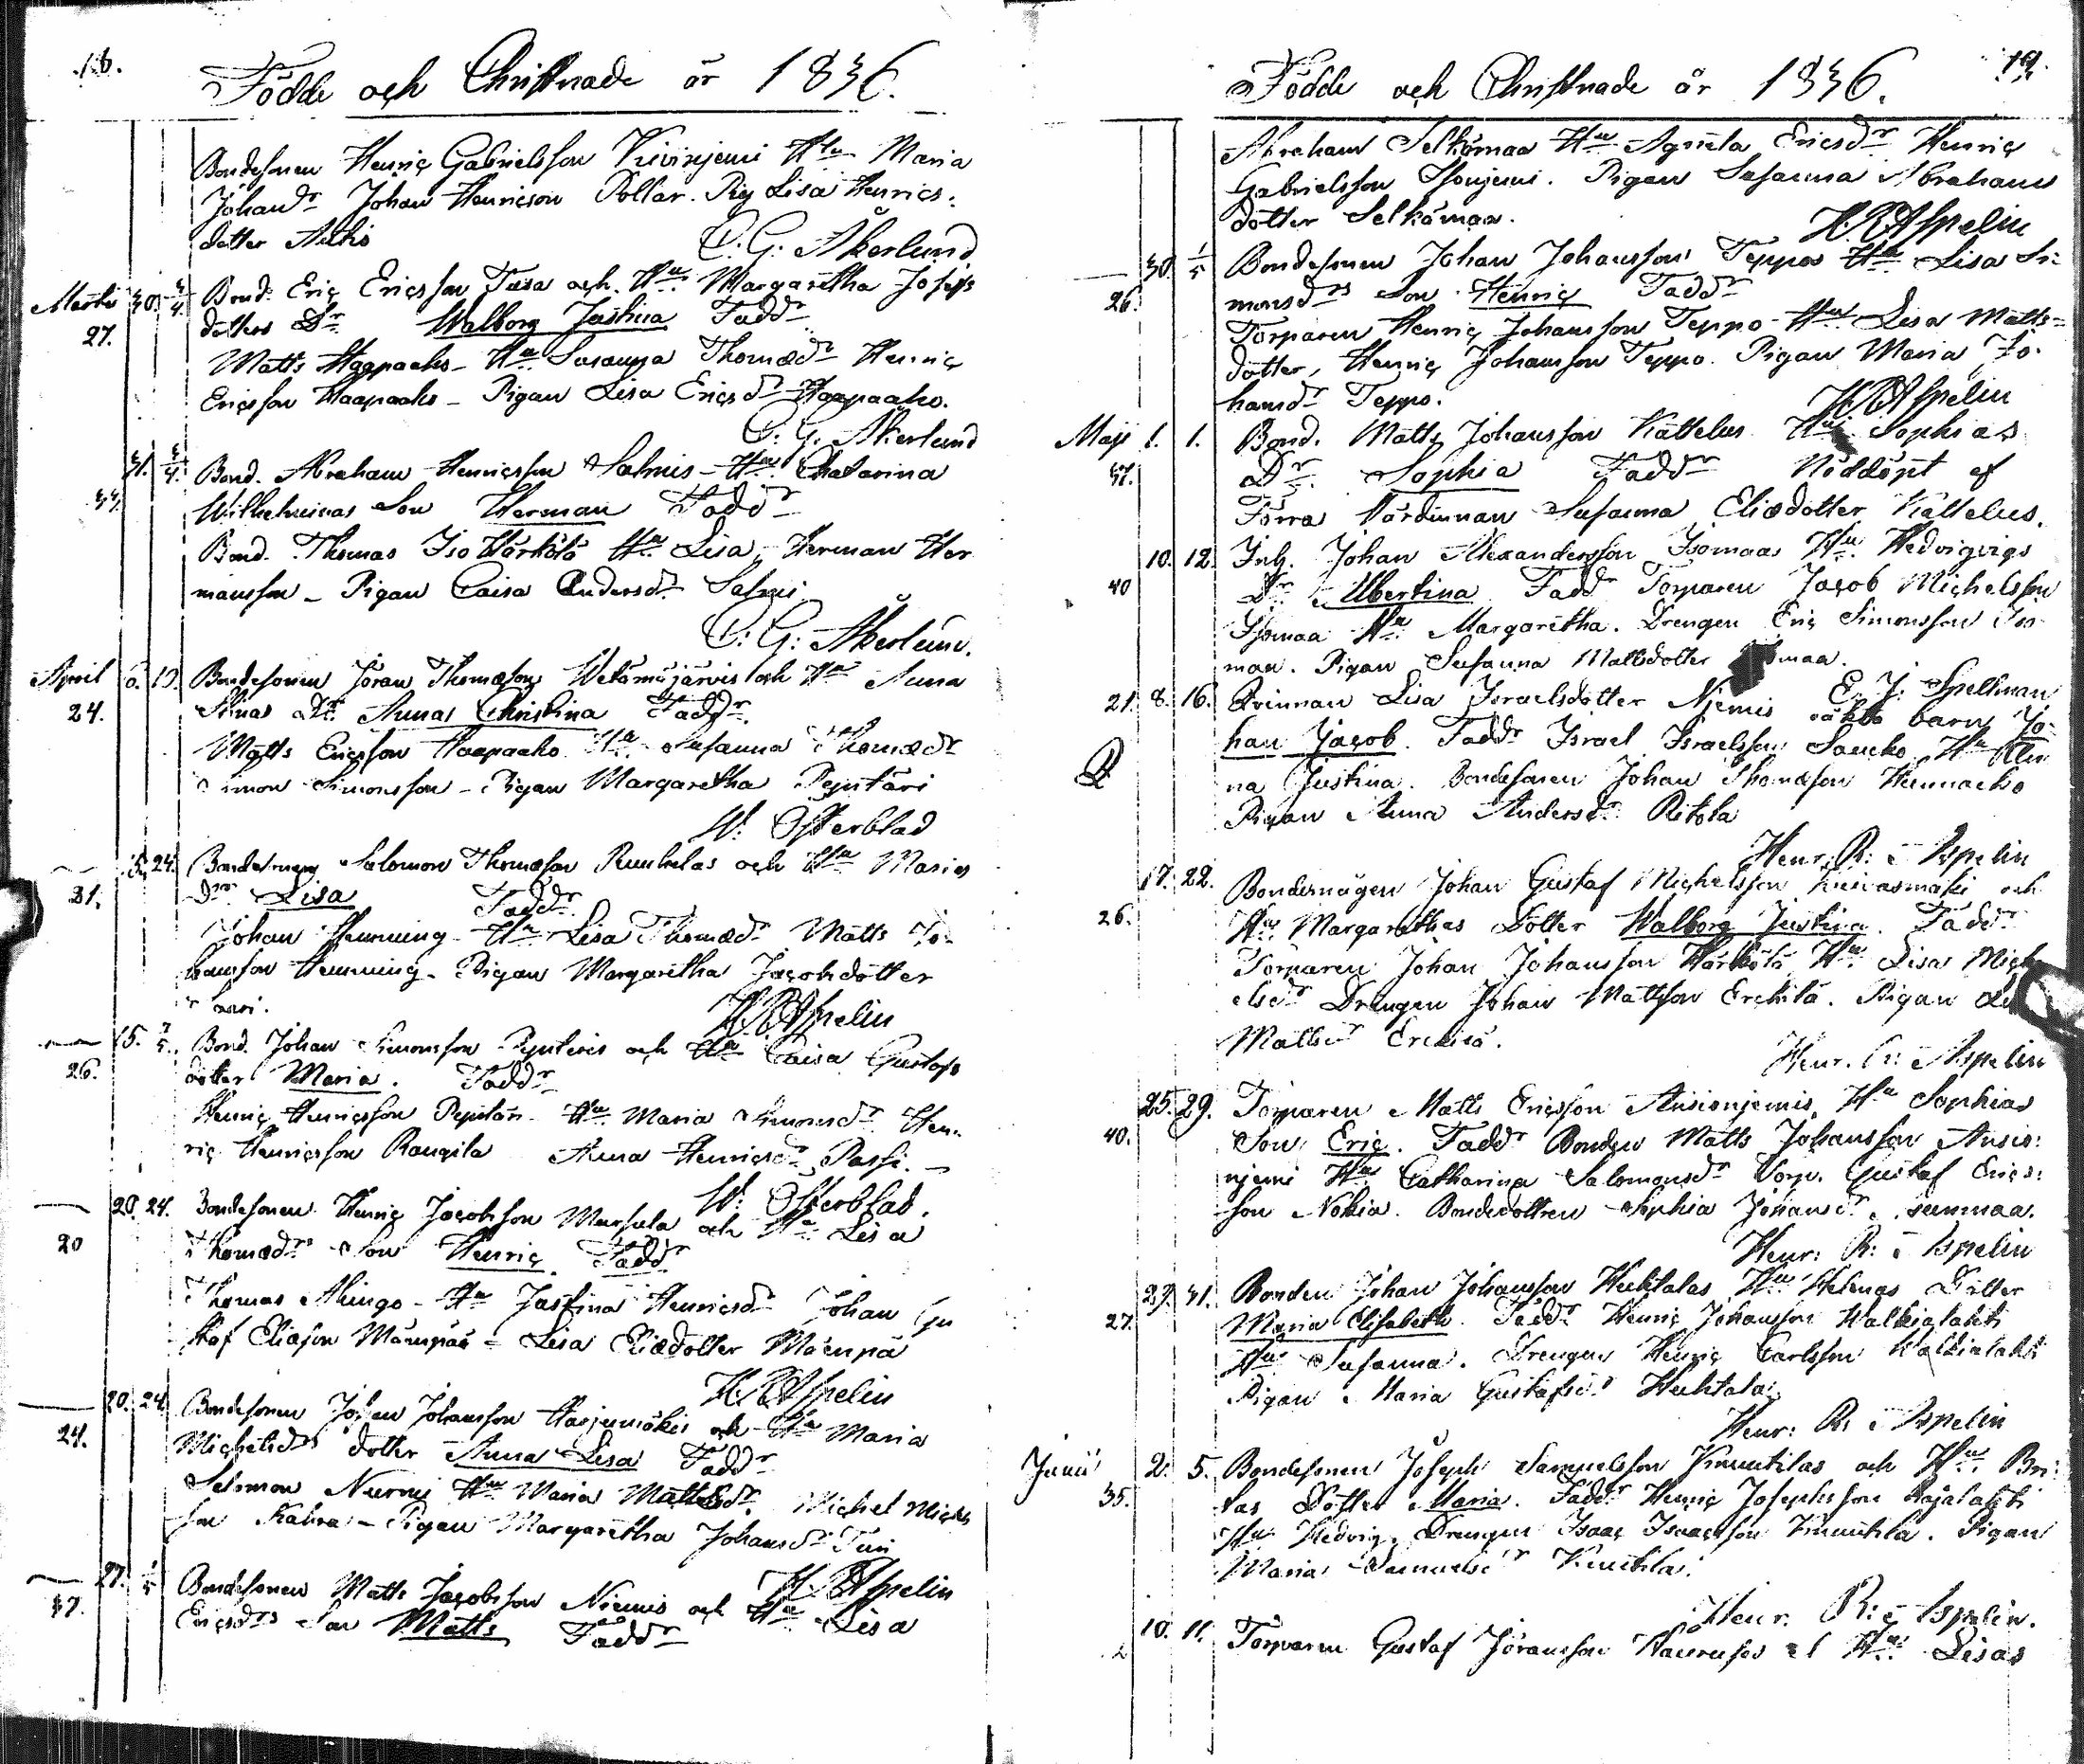 18.
Födde och Christnade år 1836.
Bondesonen Henric Gabrielsson Kivinjemi Hu Maria
Johansdr Johan Henricson Pollar. Pig Lisa Henrics-
dotter Autio
C. G: Åkerlund
Martii 30. 3/4. Bond. Eric Ericsson Tusa och Hu Margaretha Josephs
27. dotters Dr Walborg Justina Faddr
Matts Haapaaho - Hu Susanna Thomædr Henric
Ericsson Haapaaho - Pigan Lisa Ericsdr Haapaaho.
C. G. Åkerlund
31. 3/4. Bond. Abraham Henricsson Salmis - Hu Chatarina
34. Wilhelminas Son Herman Faddr
Bond. Thomas Iso Härkölä Hu Lisa, Herman Her
mansson - Pigan Caisa Andersdr Salmi
C: G: Åkerlund.
April 6. 10. Bondesonen Jöran Thomæson Wetämäjärvis och Hu Anna
24. Stinas Dr Anna Christina Faddr.
Matts Ericsson Haapaaho Hu Susanna Thomædr
Simon Simonsson - Pigan Margaretha Pejutäri
W: Osterblad
15. 24. Bondemågen Salomon Thomæson Runkelas och Hu Marias
31. Dr Lisa Faddr.
Johan Henning - Hu Lisa Thomædr Matts Jo-
hansson Henning - Pigan Margaretha Jacobsdotter
H. R. Aspelin
15. 1/5. Bond. Johan Simonsson Pejuteris och Hu Caisa Gustafs
26. dotter Maria. Faddr
Henric Henricsson Pejutäri - Hu Maria Simonsdr Hen-
ric Henricsson Rauqila Anna Henricsdr Passi. -
W: Osterblad.
20. 24. Bondesonen Henric Jacobsson Mursula och Hu Lisa
20 Thomædrs Son Henric Faddr
Thomas Ahingo - Hu Justina Henricsdr Johan Gu
staf Eliæson Mäenpää - Lisa Eliædotter Mäenpä
H. R. Aspelin
20. 24. Bondesonen Johan Johansson Harjumäkis och Hu Maria
24. Michelsdrs dotter Anna Lisa Faddr
Salomon Nurmi Hu Maria Mattsdr. Michel Michels
son Kahra - Pigan Margaretha Johansdr Turi
H. R. Aspelin
27. 1/5 Bondesonen Matts Jacobsson Niemis och Hu Lisa
37. Ericsdrs Son Matts Faddr
19.
Födde och Christnade år 1836.
Abraham Selkämaa Hu Agneta Ericsdr Henric
Gabrielsson Isonjemi. Pigan Susanna Abrahams
dotter Selkämaa.
H. R. Aspelin
30. 1/5 Bondesonen Johan Johansson Teppos Hu Lisa Si-
26. monsdrs Son Henric Faddr
Torparen Henric Johansson Teppo Hu Lisa Matts-
dotter, Henric Johansson Teppo. Pigan Maria Jo-
hansdr Teppo.
H. R. Aspelin
Maji 1. 1. Bond. Matts Johansson Kattelus Hu Sophias
37. Dr Sophia Faddr Nöddöpt af
Förra Värdinnan Susanna Eliædotter Kattelus.
10. 12. Inh. Johan Alexandersson Isomaas Hu Hedvigvigs
40 Dr Albertina Faddr Torparen Jacob Michelsson
Isomaa Hu Margaretha. Drengen Eric Simonsson Iso
maa. Pigan Susanna Mattsdotter maa.
E. J: Spellman
21. 8. 16. Qvinnan Lisa Israelsdotter Njemis oäkta barn Jo-
han Jacob. Faddr Israel Israelsson Saucko Hu Ulri
na Justina. Bondesonen Johan Thomæson Hennacko
Pigan Anna Andersdr Ritola
Henr. R: Aspelin
17. 22. Bondemågen Johan Gustaf Michelsson Kuivasmäki och
26. Hu Margarethas Dotter Walborg Justina. Faddr
Torparen Johan Johansson Härkölä Hu Lisa Mich
elsdr Drengen Johan Mattsson Erckilä. Pigan
Mattsdr Erckilä.
Henr. R: Aspelin
25. 29. Torparen Matts Ericsson Ansionjemis, Hu Sophias
40. Son Eric. Faddr Bonden Matts Johansson Ansio-
njemi Hu Catharina Salomonsdr Torp. Gustaf Erics-
son Nokia. Bondedottren Sophia Johansdr
Henr: R: Aspelin
29. 31. Bonden Johan Johansson Huhtalas Hu Helenas Dotter
27. Maria Elisabeth. Faddr Henric Johansson Walkialahti
Hu Susanna. Drengen Henric Carlsson Walkialahti
Pigan Maria Gustafsdr Huhtala
Henr: R: Aspelin
Junii 2. 5. Bondesonen Joseph Samuelsson Knuutilas och Hu Bri-
35. tas Dotter Maria. Faddr Henric Josephsson Rajalahti
Hu Hedvig. Drengen Isaac Isaacsson Knuutila. Pigan
Maria Samuelsdr Knuutila.
Henr. R: Aspelin.
10. 11. Torparen Gustaf Jöransson Haurusos Hu Lisas